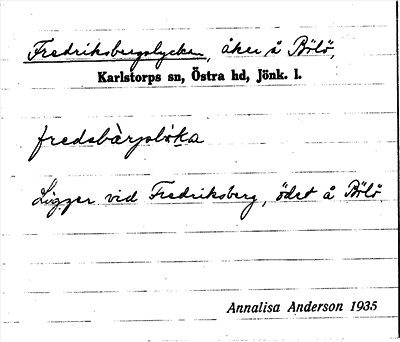 Fredriksbergslycken, åker å Bölö,
Karlstorps sn, Östra hd, Jönk. l.
fredsbàrjslỳka
Ligger vid Fredriksberg, ödet å Bölö.
Annalisa Anderson 1935